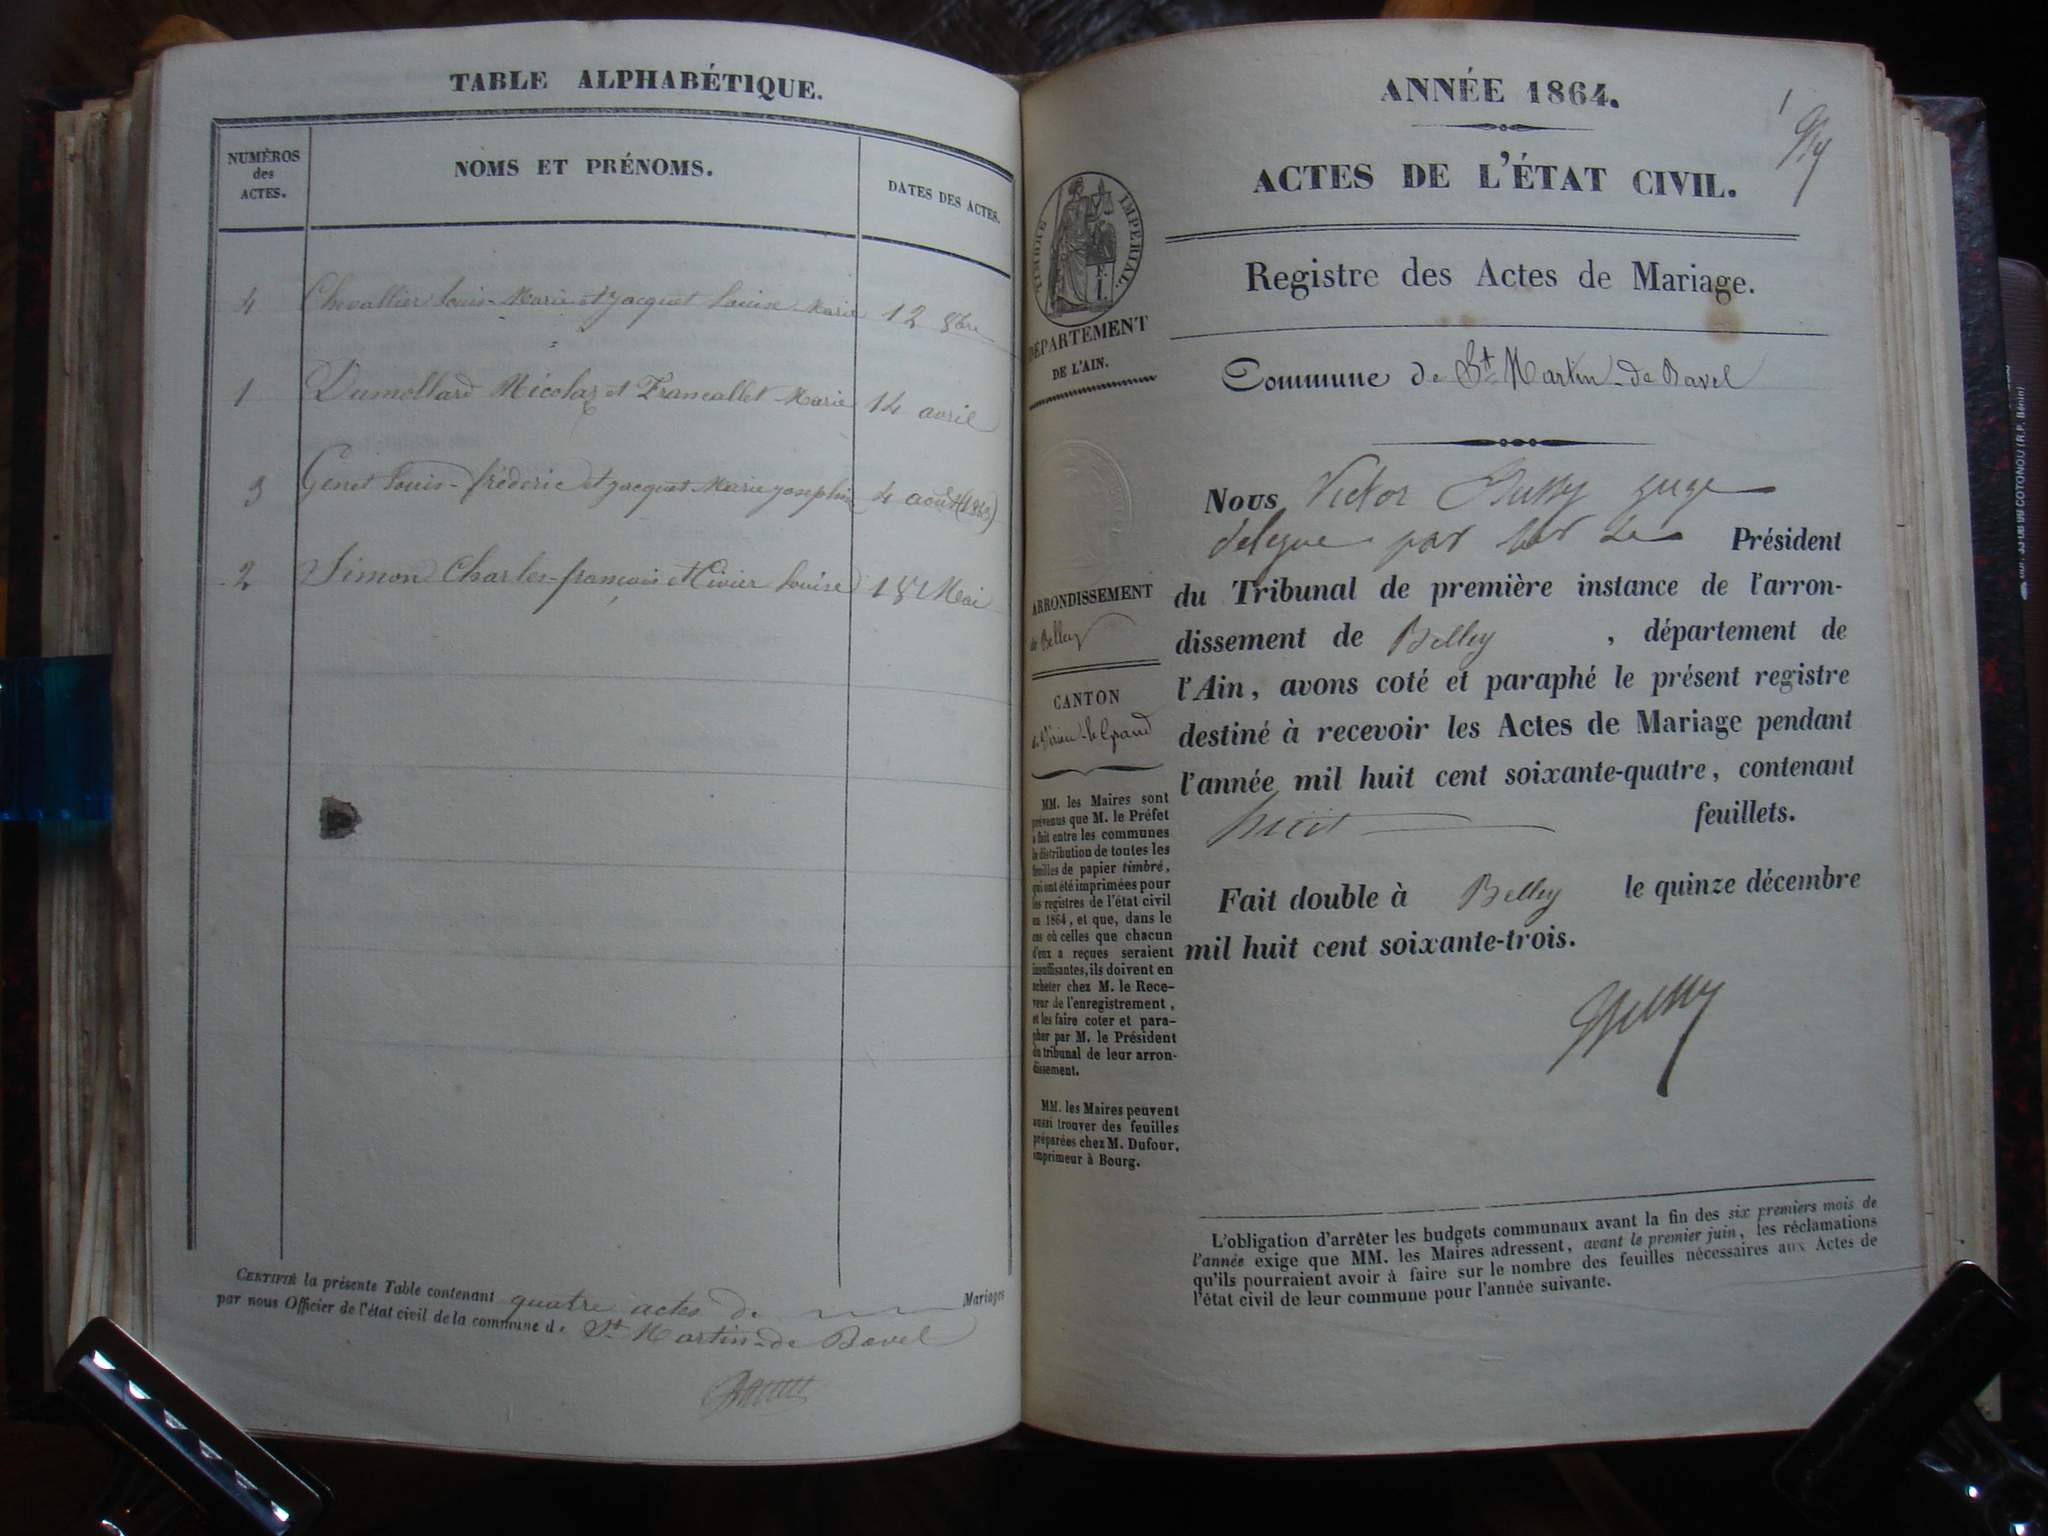 TABLE ALPHABÉTIQUE.
NUMÉROS
des
ACTES.
NOMS ET PRÉNOMS.
DATES DES ACTES.
4 Chevallier Louis-Marie et Jacquet Louise Marie 12 8bre
1 Dumollard Nicolas et Francallet Marie 14 avril
3 Genet Louis-fréderic et Jacquet Marie Josephine 4 août (1863)
2 Simon Charles-françois et Louise 18 Mai
CERTIFIÉ la présente Table contenant quatre actes de Mariages
par nous Officier de l'état civil de la commune d. St Martin-de Bavel
ANNÉE 1864.
1
ACTES DE L'ÉTAT CIVIL.
TIMBRE IMPÉRIAL.
Registre des Actes de Mariage.
DÉPARTEMENT
DE L'AIN.
Commune de St Martin-de Bavel
Nous Victor juge
délégué par le Président
du Tribunal de première instance de l'arron-
dissement de Belley , département de
l'Ain, avons coté et paraphé le présent registre
destiné à recevoir les Actes de Mariage pendant
l'année mil huit cent soixante-quatre, contenant
huit feuillets.
Fait double à Belley le quinze décembre
mil huit cent soixante-trois.
ARRONDISSEMENT
de Belley
CANTON
de Virieu-le-Grand
MM. les Maires sont
prévenus que M. le Préfet
a fait entre les communes
la distribution de toutes les
feuilles de papier timbré,
qui ont été imprimées pour
les registres de l'état civil
en 1864, et que, dans le
cas où celles que chacun
d'eux a reçues seraient
insuffisantes, ils doivent en
acheter chez M. le Rece-
veur de l'enregistrement,
et les faire coter et para-
pher par M. le Président
du tribunal de leur arron-
dissement.
MM. les Maires peuvent
aussi trouver des feuilles
préparées chez M. Dufour,
imprimeur à Bourg.
L'obligation d'arrêter les budgets communaux avant la fin des six premiers mois de
l'année exige que MM. les Maires adressent, avant le premier juin, les réclamations
qu'ils pourraient avoir à faire sur le nombre des feuilles nécessaires aux Actes de
l'état civil de leur commune pour l'année suivante.
COTONOU (R.P. Bénin)